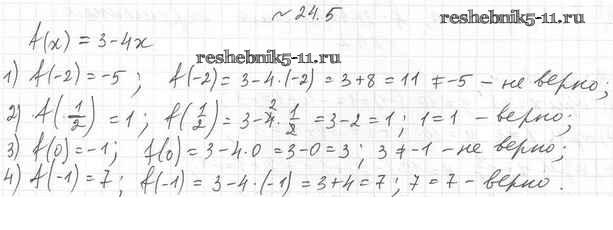 ~ 24.5
reshebnik5-11.ru
f(x) = 3-4x
reshebnik5-11.ru
1) f(-2) = -5; f(-2) = 3-4·(-2) = 3+8 = 11 ≠ -5 - не верно;
2) f(1/2) = 1; f(1/2) = 3-4·1/2 = 3-2 = 1; 1=1 - верно;
3) f(0) = -1; f(0) = 3-4·0 = 3-0 = 3; 3 ≠ -1 - не верно;
4) f(-1) = 7; f(-1) = 3-4·(-1) = 3+4 = 7; 7=7 - верно.